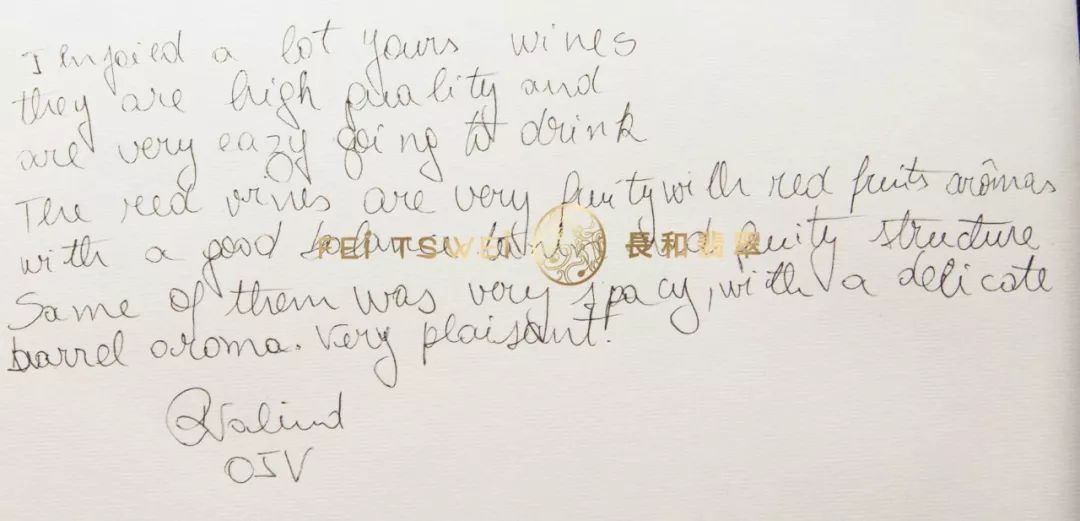 I enjoied a lot yours wines
they are high quality and
are very eazy going to drink
The red vines are very fruity with red fruits arômas
with a good balance and fruity structure
FEI TSWEI 長和翡翠
Same of them was very spacy, with a delicate
barrel aroma. Very plaisant!
OIV